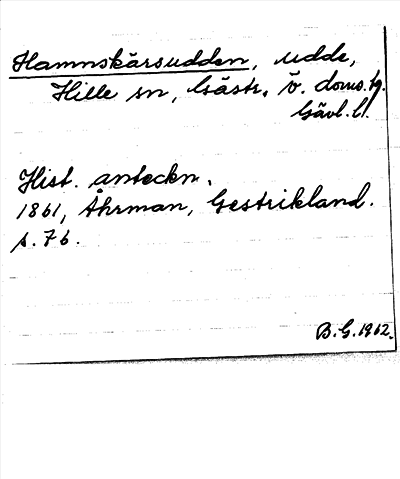 Hamnskärsudden, udde,
Hille sn, Gästr. ö. doms.
Gävl. l.
Hist. anteckn.
1861, Åhrman, Gestrikland.
s. 76.
B.G. 1962.